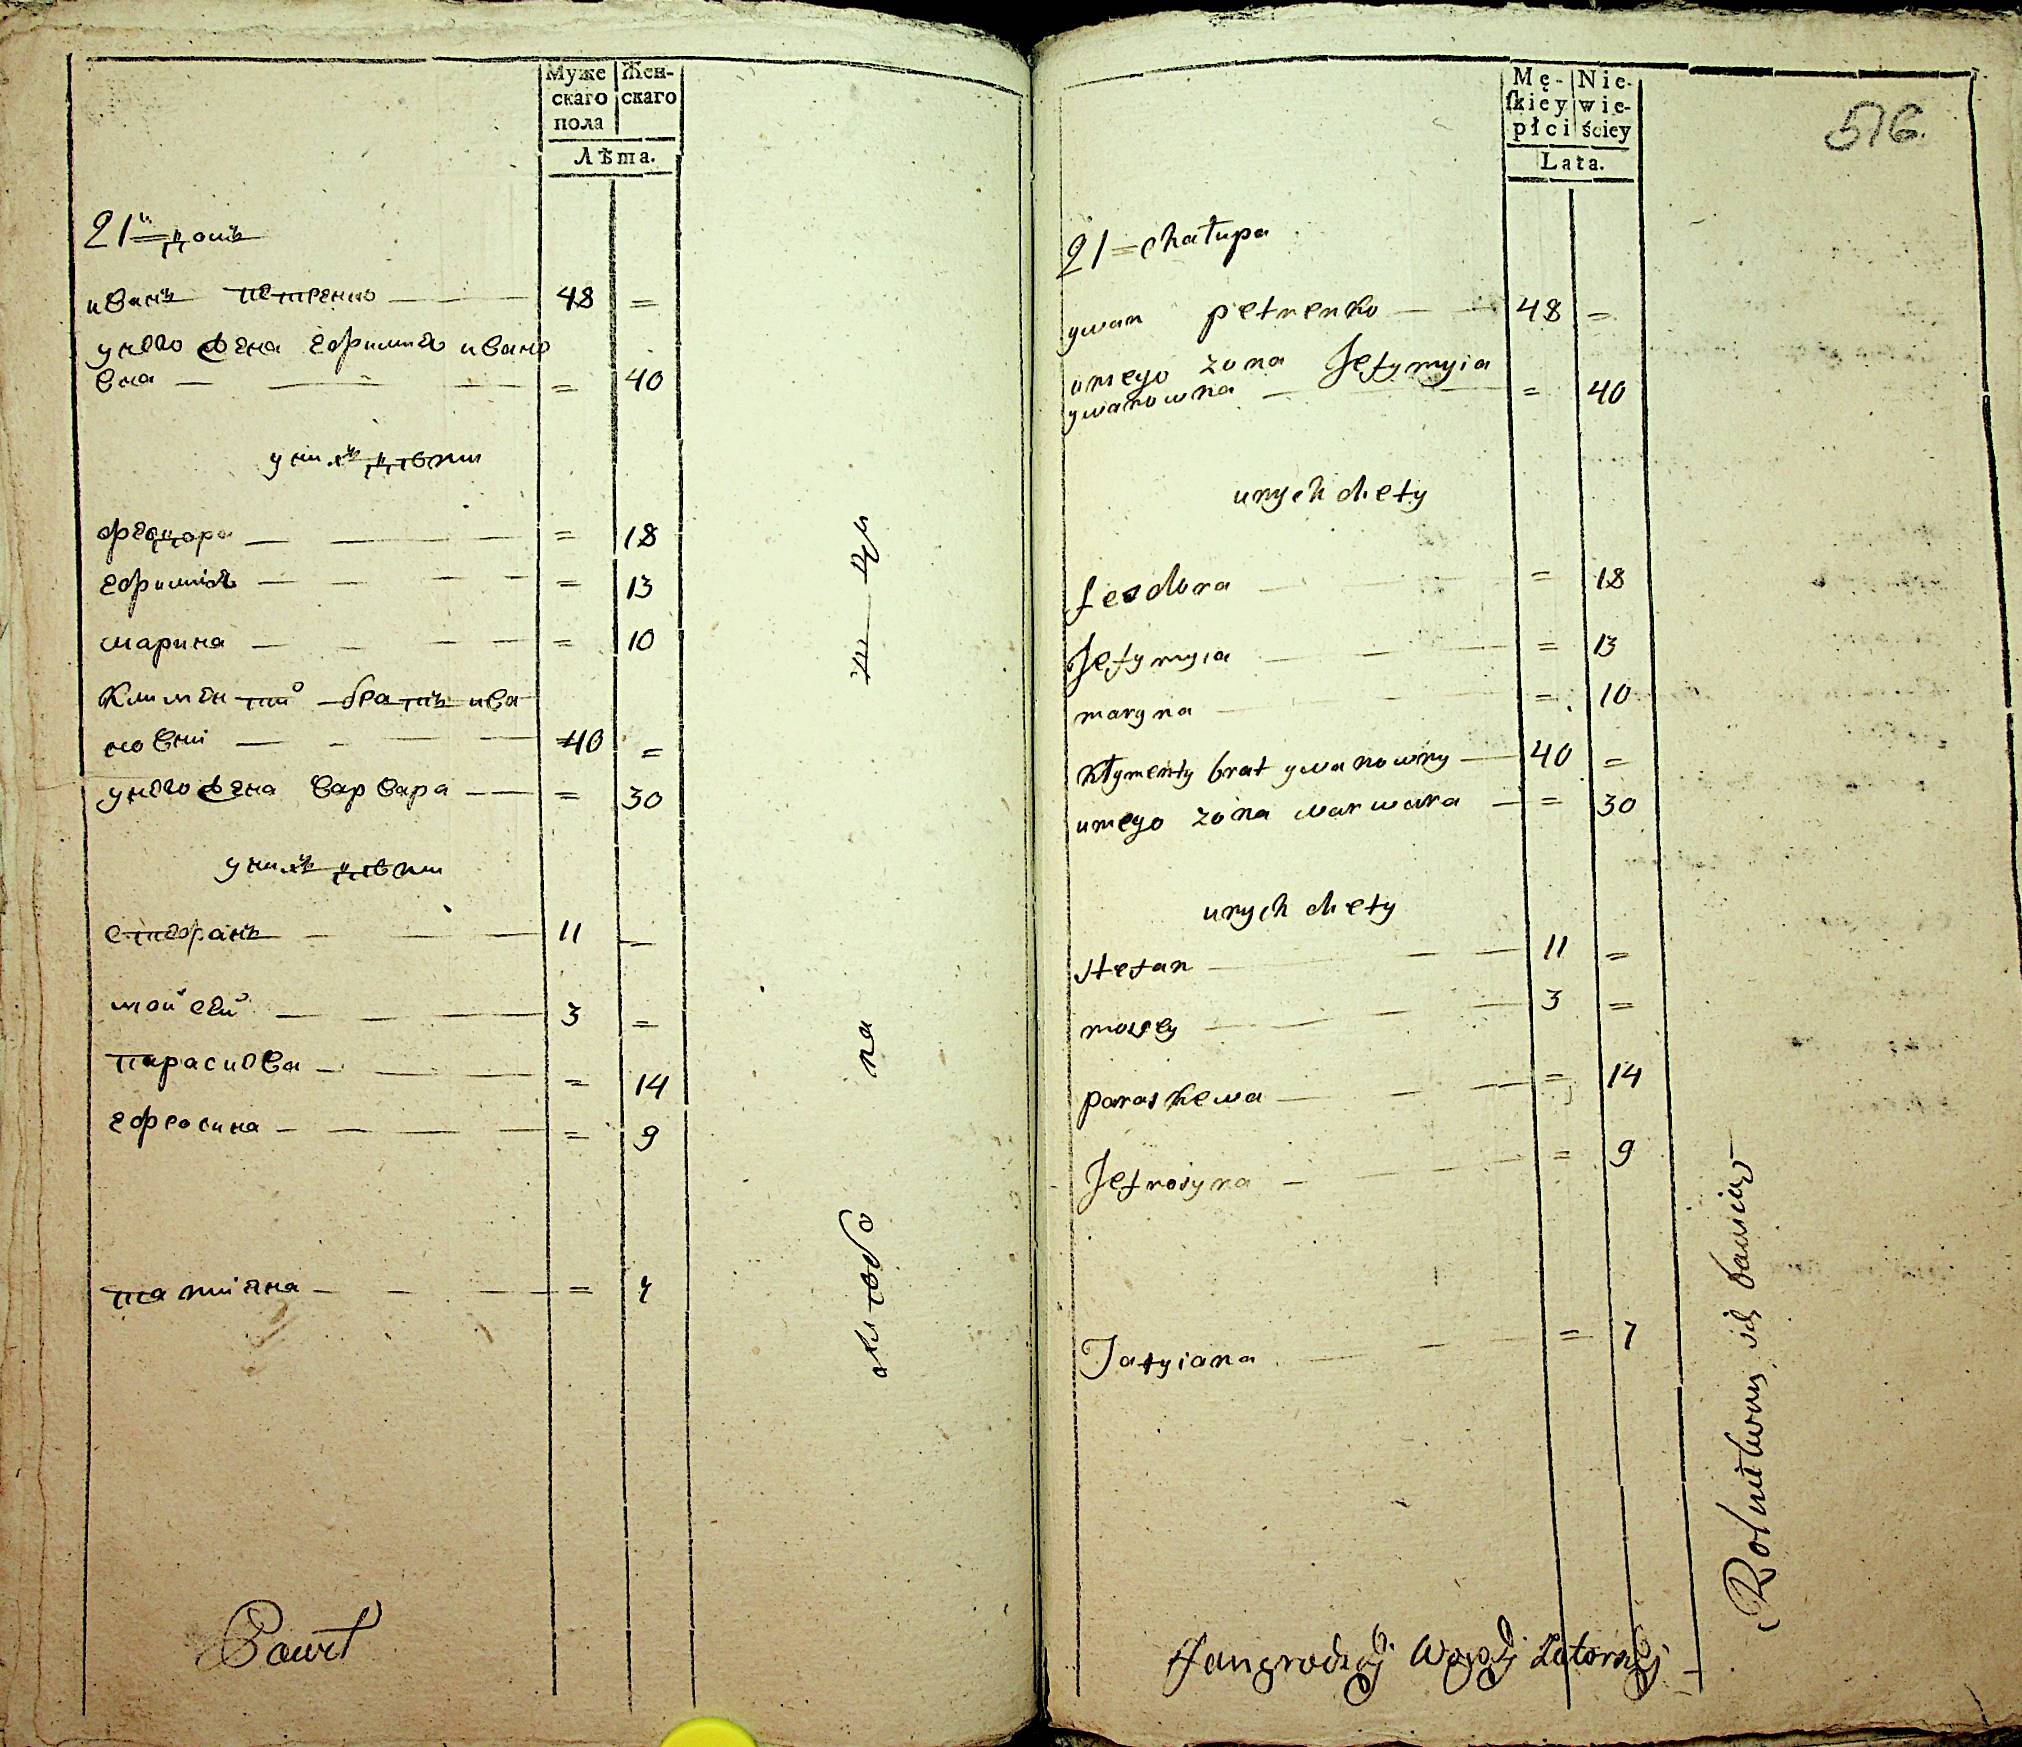 Муже
скаго
пола
Жен-
скаго
Лѣта.
21й домъ
иванъ петренко 48 =
унего жена ефимия ивано
вна = 40
унихъ дѣти
федора = 18
ефимія = 13
марина = 10
климентій братъ ива
новни 40 =
унего жена варвара = 30
унихъ дѣти
стефанъ 11 =
мойсей 3 =
параскева = 14
ефросина = 9
татіяна = 7
Powit
Mę-
skiey
płci
Nie-
wie-
ściey
Lata.
516.
21 = chałupa
ywan petrenko 48 =
unego zona Jefymyia
ywanowna = 40
unych diety
feodora = 18
Jefymyia = 13
maryna = 10
kłymenty brat ywanowny 40 =
unego zona warwara = 30
unych diety
stefan 11 =
mosey 3 =
paraskewa = 14
Jefrosyna = 9
Tatyiana = 7